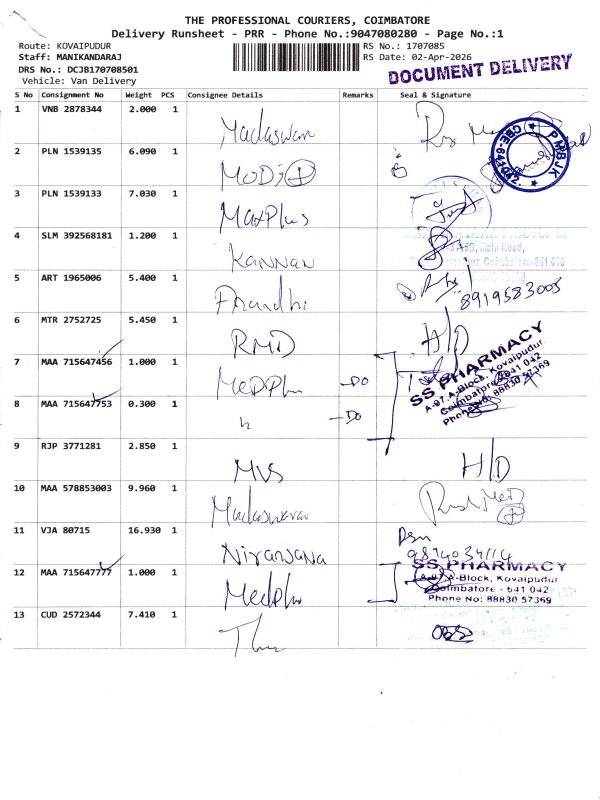 THE PROFESSIONAL COURIERS, COIMBATORE
Delivery Runsheet - PRR - Phone No.:9047080280 - Page No.:1
Route: KOVAIPUDUR
RS No.: 1707085
Staff: MANIKANDARAJ
RS Date: 02-Apr-2026
DRS No.: DCJB170708501
Vehicle: Van Delivery
DOCUMENT DELIVERY
S No Consignment No Weight PCS Consignee Details Remarks Seal & Signature
1 VNB 2878344 2.000 1
PMBJK
CBE-641042.
2 PLN 1539135 6.090 1 MODi
3 PLN 1539133 7.030 1 MaxPlus
4 SLM 392568181 1.200 1 KANNAN
Main Road,
Coimbatore-641
5 ART 1965006 5.400 1
8919583005
6 MTR 2752725 5.450 1 RMD H/D
7 MAA 715647456 1.000 1 MEDPlus -DO
SS PHARMACY
A-97, A-Block, Kovaipudur,
Coimbatore - 641 042
Phone No: 88830 57369
8 MAA 715647753 0.300 1 -DO
9 RJP 3771281 2.850 1 MVS H/D
10 MAA 578853003 9.960 1
11 VJA 80715 16.930 1 Niravana
12 MAA 715647777 1.000 1 Medplus
SS PHARMACY
A-97, A-Block, Kovaipudur
Coimbatore - 641 042
Phone No: 88830 57369
13 CUD 2572344 7.410 1